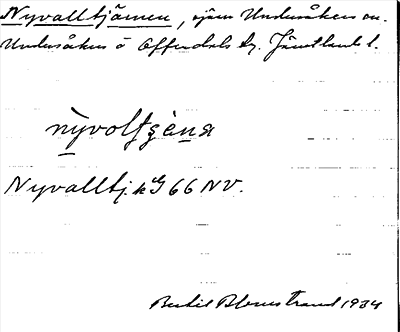 Nyvalltjärnen, sjö i Undersåkers sn.
Undersåkers o Offerdals tg. Jämtlands l.
Nyvalltj. k 66 NV.
Bertil Blomstrand 1934